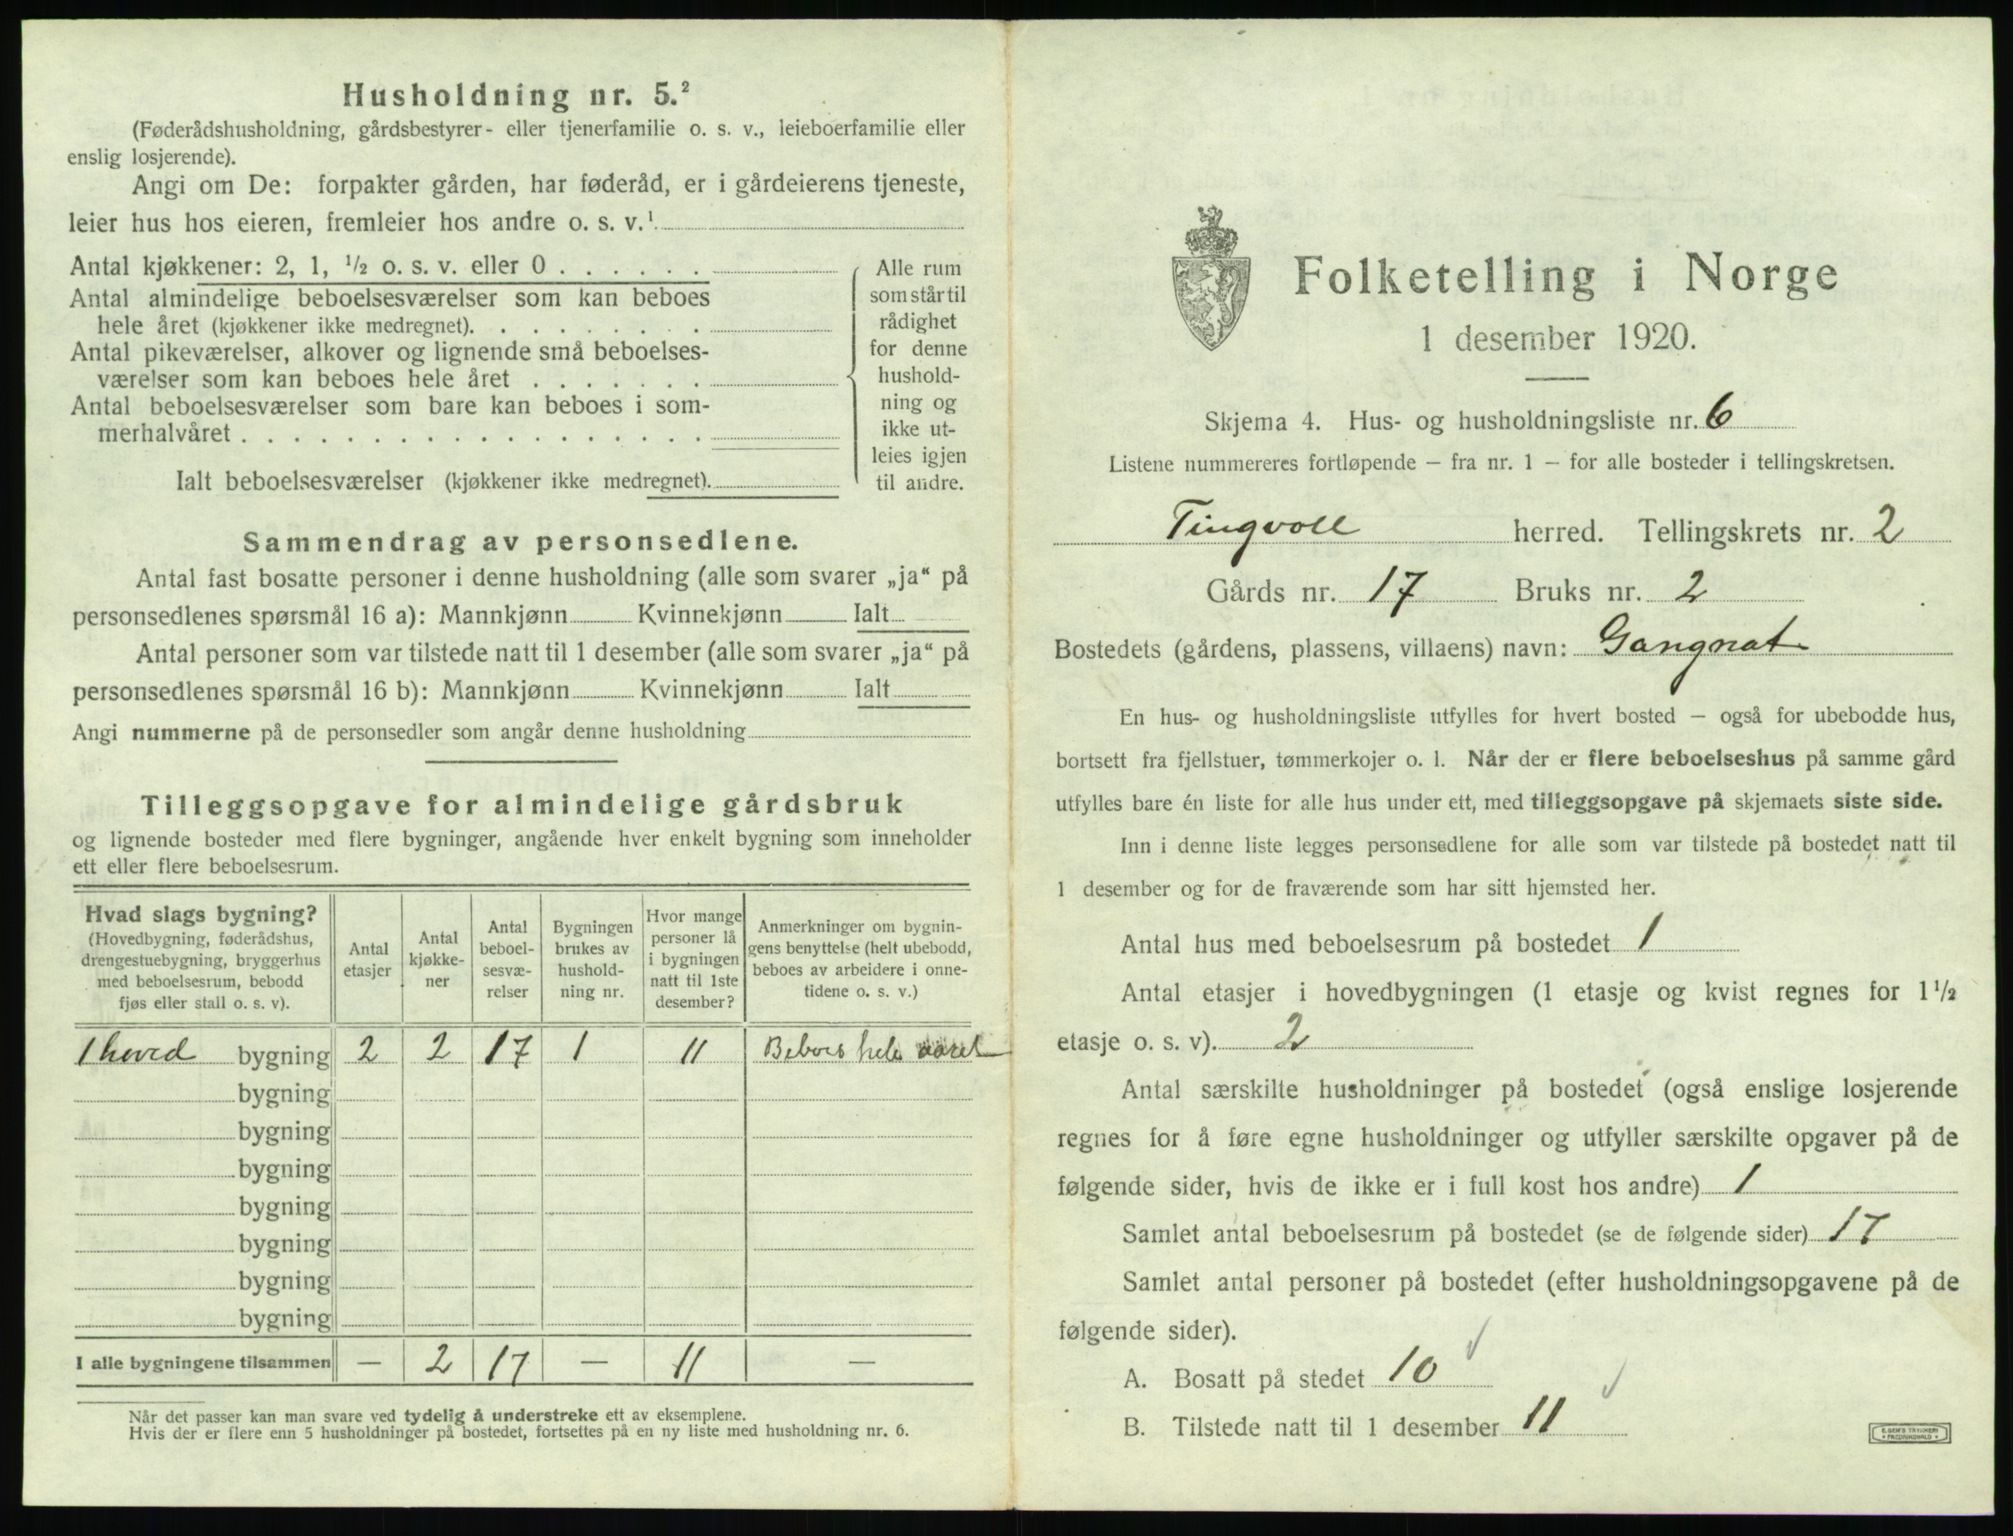 Husholdning nr. 5.²
(Føderådshusholdning, gårdsbestyrer- eller tjenerfamilie o. s. v., leieboerfamilie eller
enslig losjerende).
Angi om De: forpakter gården, har føderåd, er i gårdeierens tjeneste,
leier hus hos eieren, fremleier hos andre o. s. v.¹
Antal kjøkkener: 2, 1, ½ o. s. v. eller 0 . . . . . .
Antal almindelige beboelsesværelser som kan beboes
hele året (kjøkkener ikke medregnet). . . . . . . . .
Antal pikeværelser, alkover og lignende små beboelses-
værelser som kan beboes hele året . . . . . . .
Antal beboelsesværelser som bare kan beboes i som-
merhalvåret . . . . . . . . . . . . . . . . . .
Ialt beboelsesværelser (kjøkkener ikke medregnet).
Alle rum
som står til
rådighet
for denne
hushold-
ning og
ikke ut-
leies igjen
til andre.
Sammendrag av personsedlene.
Antal fast bosatte personer i denne husholdning (alle som svarer „ja“ på
personsedlenes spørsmål 16 a): Mannkjønn Kvinnekjønn Ialt
Antal personer som var tilstede natt til 1 desember (alle som svarer „ja“ på
personsedlenes spørsmål 16 b): Mannkjønn Kvinnekjønn Ialt
Angi nummerne på de personsedler som angår denne husholdning
Tilleggsopgave for almindelige gårdsbruk
og lignende bosteder med flere bygninger, angående hver enkelt bygning som inneholder
ett eller flere beboelsesrum.
Hvad slags bygning?
(Hovedbygning, føderådshus,
drengestuebygning, bryggerhus
med beboelsesrum, bebodd
fjøs eller stall o. s. v).
Antal
etasjer
Antal
kjøkke-
ner
Antal
beboel-
sesvæ-
relser
Bygningen
brukes av
hushold-
ning nr.
Hvor mange
personer lå
i bygningen
natt til 1ste
desember?
Anmerkninger om bygnin-
gens benyttelse (helt ubebodd,
beboes av arbeidere i onne-
tidene o. s. v.)
1 hoved bygning 2 2 17 1 11 Beboes hele aaret
bygning
bygning
bygning
bygning
bygning
bygning
bygning
I alle bygningene tilsammen — 2 17 — 11 —
Når det passer kan man svare ved tydelig å understreke ett av eksemplene.
Hvis der er flere enn 5 husholdninger på bostedet, fortsettes på en ny liste med husholdning nr. 6.
Folketelling i Norge
1 desember 1920.
Skjema 4. Hus- og husholdningsliste nr. 6
Listene nummereres fortløpende – fra nr. 1 – for alle bosteder i tellingskretsen.
Tingvoll herred. Tellingskrets nr. 2
Gårds nr. 17 Bruks nr. 2
Bostedets (gårdens, plassens, villaens) navn: Gangnat
En hus- og husholdningsliste utfylles for hvert bosted – også for ubebodde hus,
bortsett fra fjellstuer, tømmerkojer o. l. Når der er flere beboelseshus på samme gård
utfylles bare én liste for alle hus under ett, med tilleggsopgave på skjemaets siste side.
Inn i denne liste legges personsedlene for alle som var tilstede på bostedet natt til
1 desember og for de fraværende som har sitt hjemsted her.
Antal hus med beboelsesrum på bostedet 1
Antal etasjer i hovedbygningen (1 etasje og kvist regnes for 1½
etasje o. s. v). 2
Antal særskilte husholdninger på bostedet (også enslige losjerende
regnes for å føre egne husholdninger og utfyller særskilte opgaver på de
følgende sider, hvis de ikke er i full kost hos andre) 1
Samlet antal beboelsesrum på bostedet (se de følgende sider) 17
Samlet antal personer på bostedet (efter husholdningsopgavene på de
følgende sider).
A. Bosatt på stedet 10
B. Tilstede natt til 1 desember 11